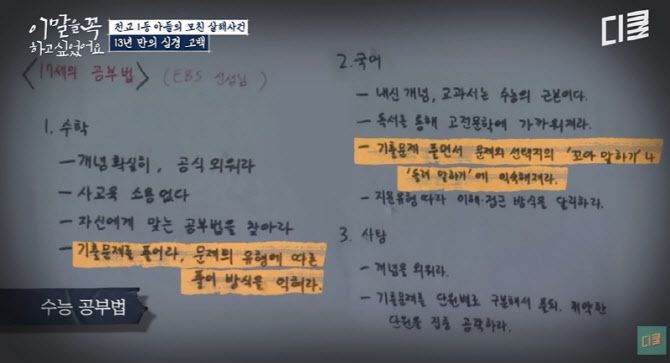 이말을 꼭
하고싶었어요
전교 1등 아들의 모친 살해사건
13년 만의 심경 고백
디쿨
<17세의 공부법> (EBS 선생님)
1. 수학
- 개념 확실히, 공식 외워라
- 사교육 소용없다
- 자신에게 맞는 공부법을 찾아라
- 기출문제를 풀어라, 문제의 유형에 따른
풀이 방식을 익혀라.
2. 국어
- 내신 개념, 교과서는 수능의 근본이다.
- 독서를 통해 고전문학에 가까워져라.
- 기출문제 풀면서 문제와 선택지의 '꼬아 말하기'나
'돌려 말하기'에 익숙해져라.
- 지문유형 따라 이해·접근 방식을 달리하라.
3. 사탐
- 개념을 외워라.
- 기출문제를 단원별로 구분해서 풀되, 취약한
단원을 집중 공략하라.
수능 공부법
디쿨